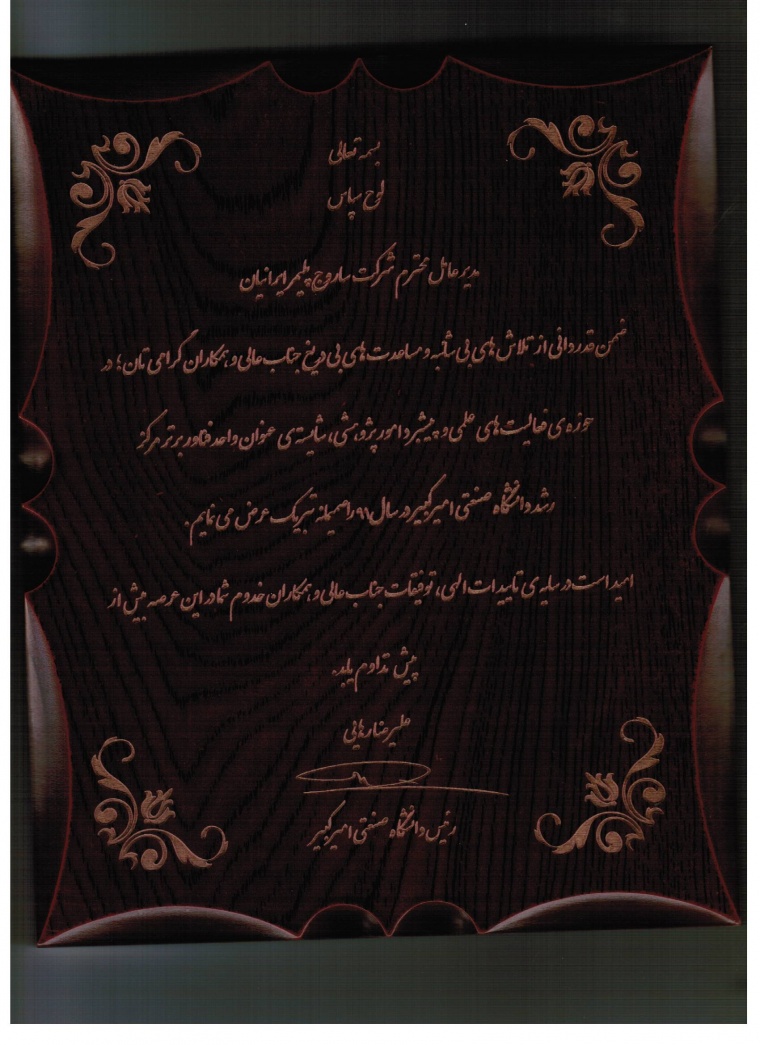 بسمه تعالی
لوح سپاس
مدیر عامل محترم شرکت ساروج پلیمر ایرانیان
ضمن قدردانی از تلاش های بی شائبه و مساعدت های بی دریغ جناب عالی و همکاران گرامی تان؛ در
حوزه ی فعالیت های علمی و پیشبرد امور پژوهشی، شایسته ی عنوان واحد فناور برتر مرکز
رشد دانشگاه صنعتی امیرکبیر در سال ۹۱ را صمیمانه تبریک عرض می نمایم.
امید است در سایه ی تاییدات الهی، توفیقات جناب عالی و همکاران خدوم شما در این عرصه بیش از
پیش تداوم یابد.
علیرضا رهایی
رئیس دانشگاه صنعتی امیرکبیر